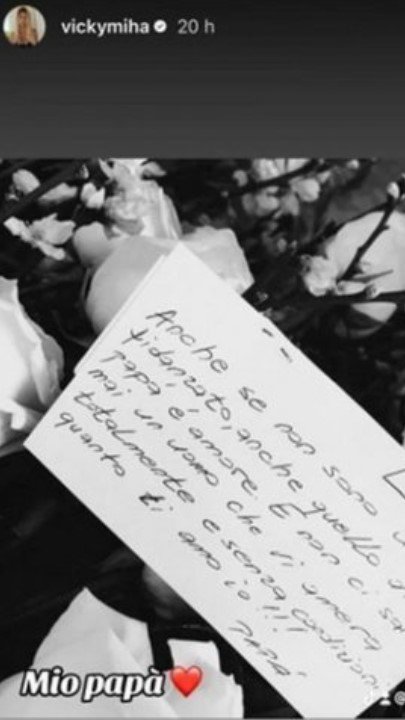 vickymiha 20 h
Anche se non sono
fidanzato, anche quello
Papà è amore. E non ci
mai un uomo che ti amerà
totalmente e senza condizioni
quanto ti amo io!!!
PAPÀ
Mio papà